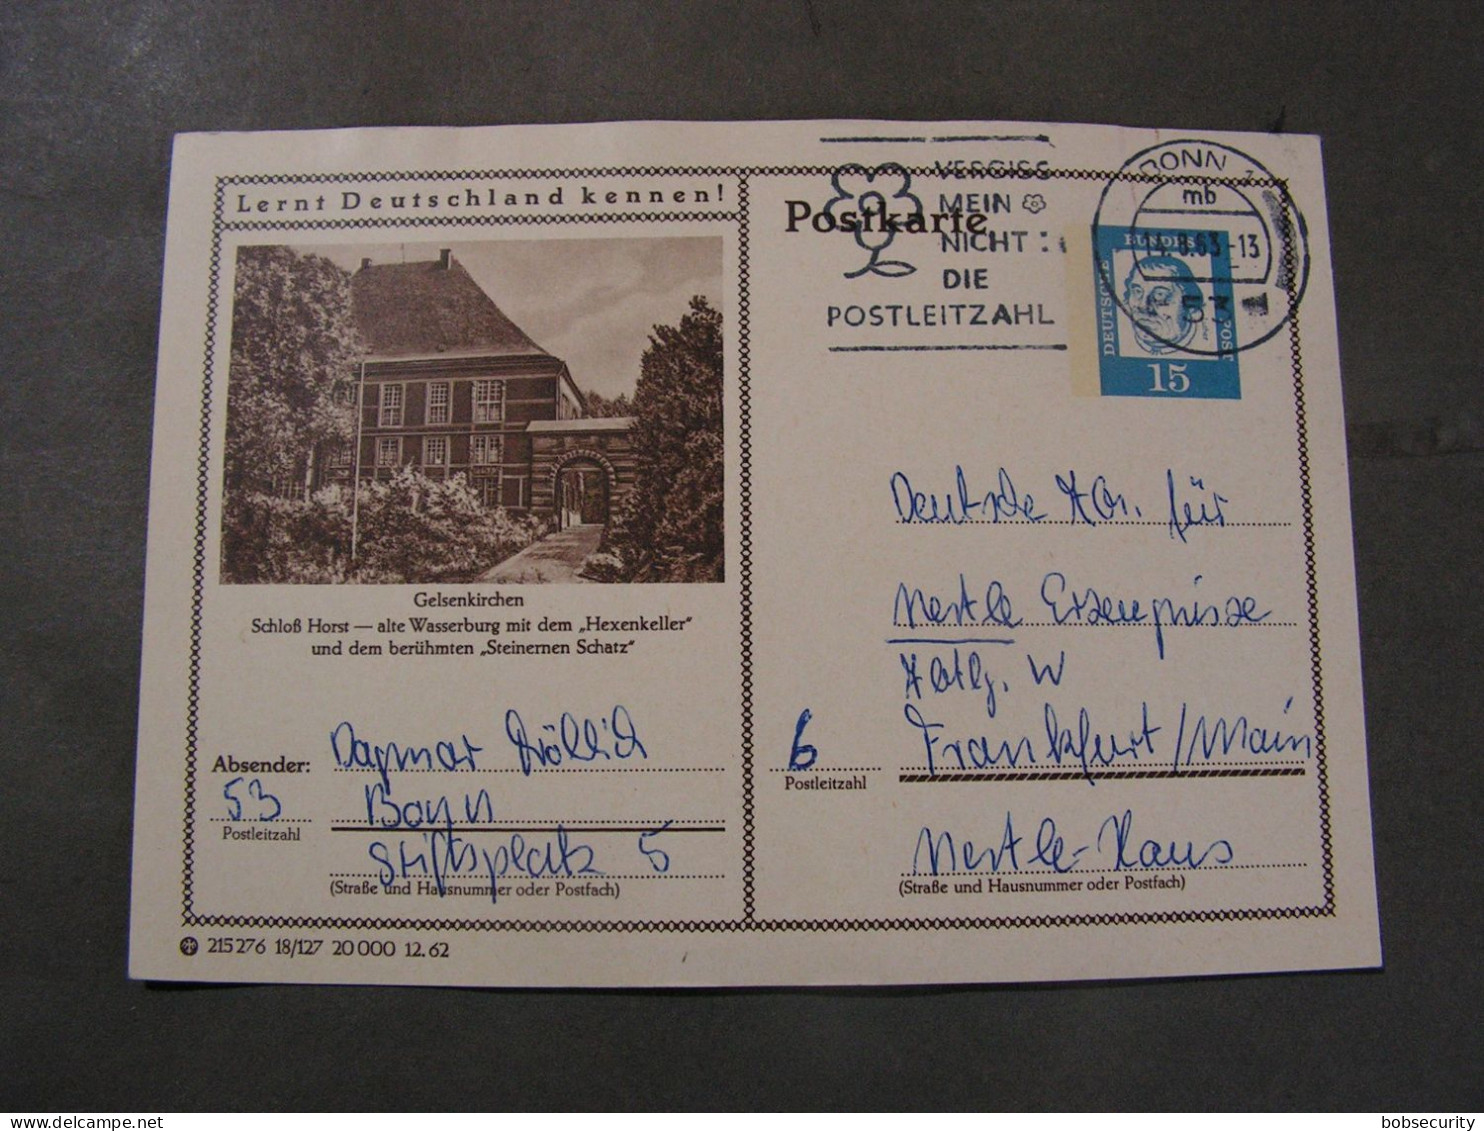 Lernt Deutschland kennen!
Gelsenkirchen
Schloß Horst — alte Wasserburg mit dem „Hexenkeller“
und dem berühmten „Steinernen Schatz“
Absender: Dagmar Fröhlich
53 Bonn
Postleitzahl
Stiftsplatz 5
(Straße und Hausnummer oder Postfach)
215 276 18/127 20 000 12. 62
Postkarte
VERGISS
MEIN
NICHT:
DIE
POSTLEITZAHL
BONN
mb
14.8.63-13
53
DEUTSCHE
BUNDES
POST
15
Deutsche AG. für
Nestle Erzeugnisse
Abtlg. W
6 Frankfurt/Main
Postleitzahl
Nestle-Haus
(Straße und Hausnummer oder Postfach)
bobsecurity